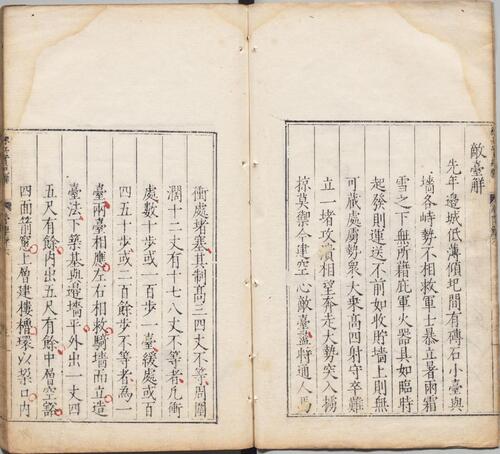 敵臺解
先年邊城低薄傾圯間有磚石小臺與
墻各峙勢不相救軍士暴立暑雨霜
雪之下無所藉庇軍火器具如臨時
起發則運送不前如收貯墻上則無
可藏處虜勢衆大乘高四射守卒難
立一堵攻潰相望奔走大勢突入擄
掠莫禦今建空心敵臺盡將通人馬
衝處堵塞其制高三四丈不等周圍
濶十二丈有十七八丈不等者凢衝
處數十歩或一百歩一臺緩處或百
四五十歩或二百餘歩不等者為一
臺兩臺相應左右相救騎墻而立造
臺法下築基與邊墻平外出一丈四
五尺有餘內出五尺有餘中層空豁
四面箭窓上層建樓櫓環以垜口內